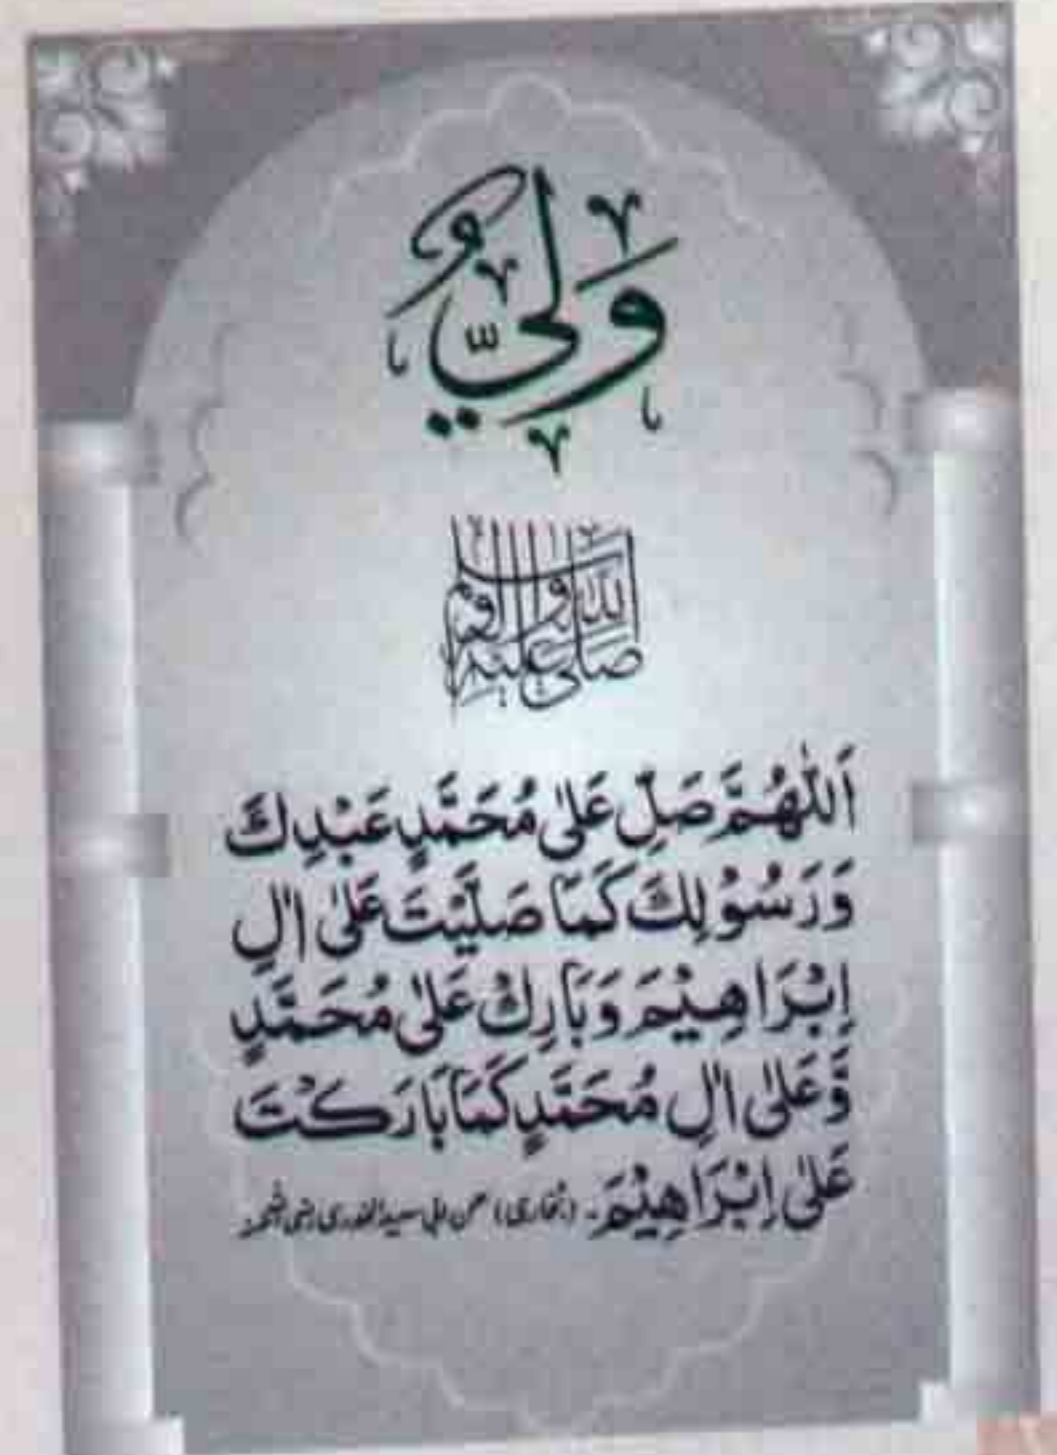 وَلِيٌّ
صَلَّى اللّٰهُ عَلَيْهِ وَاٰلِهٖ وَسَلَّمَ
اَللّٰهُمَّ صَلِّ عَلٰى مُحَمَّدٍ عَبْدِكَ
وَرَسُوْلِكَ كَمَا صَلَّيْتَ عَلٰى اٰلِ
اِبْرَاهِيْمَ وَبَارِكْ عَلٰى مُحَمَّدٍ
وَّعَلٰى اٰلِ مُحَمَّدٍ كَمَا بَارَكْتَ
عَلٰى اِبْرَاهِيْمَ۔ (بخاری) عن ابی سعید الخدری رضی اللہ عنہ